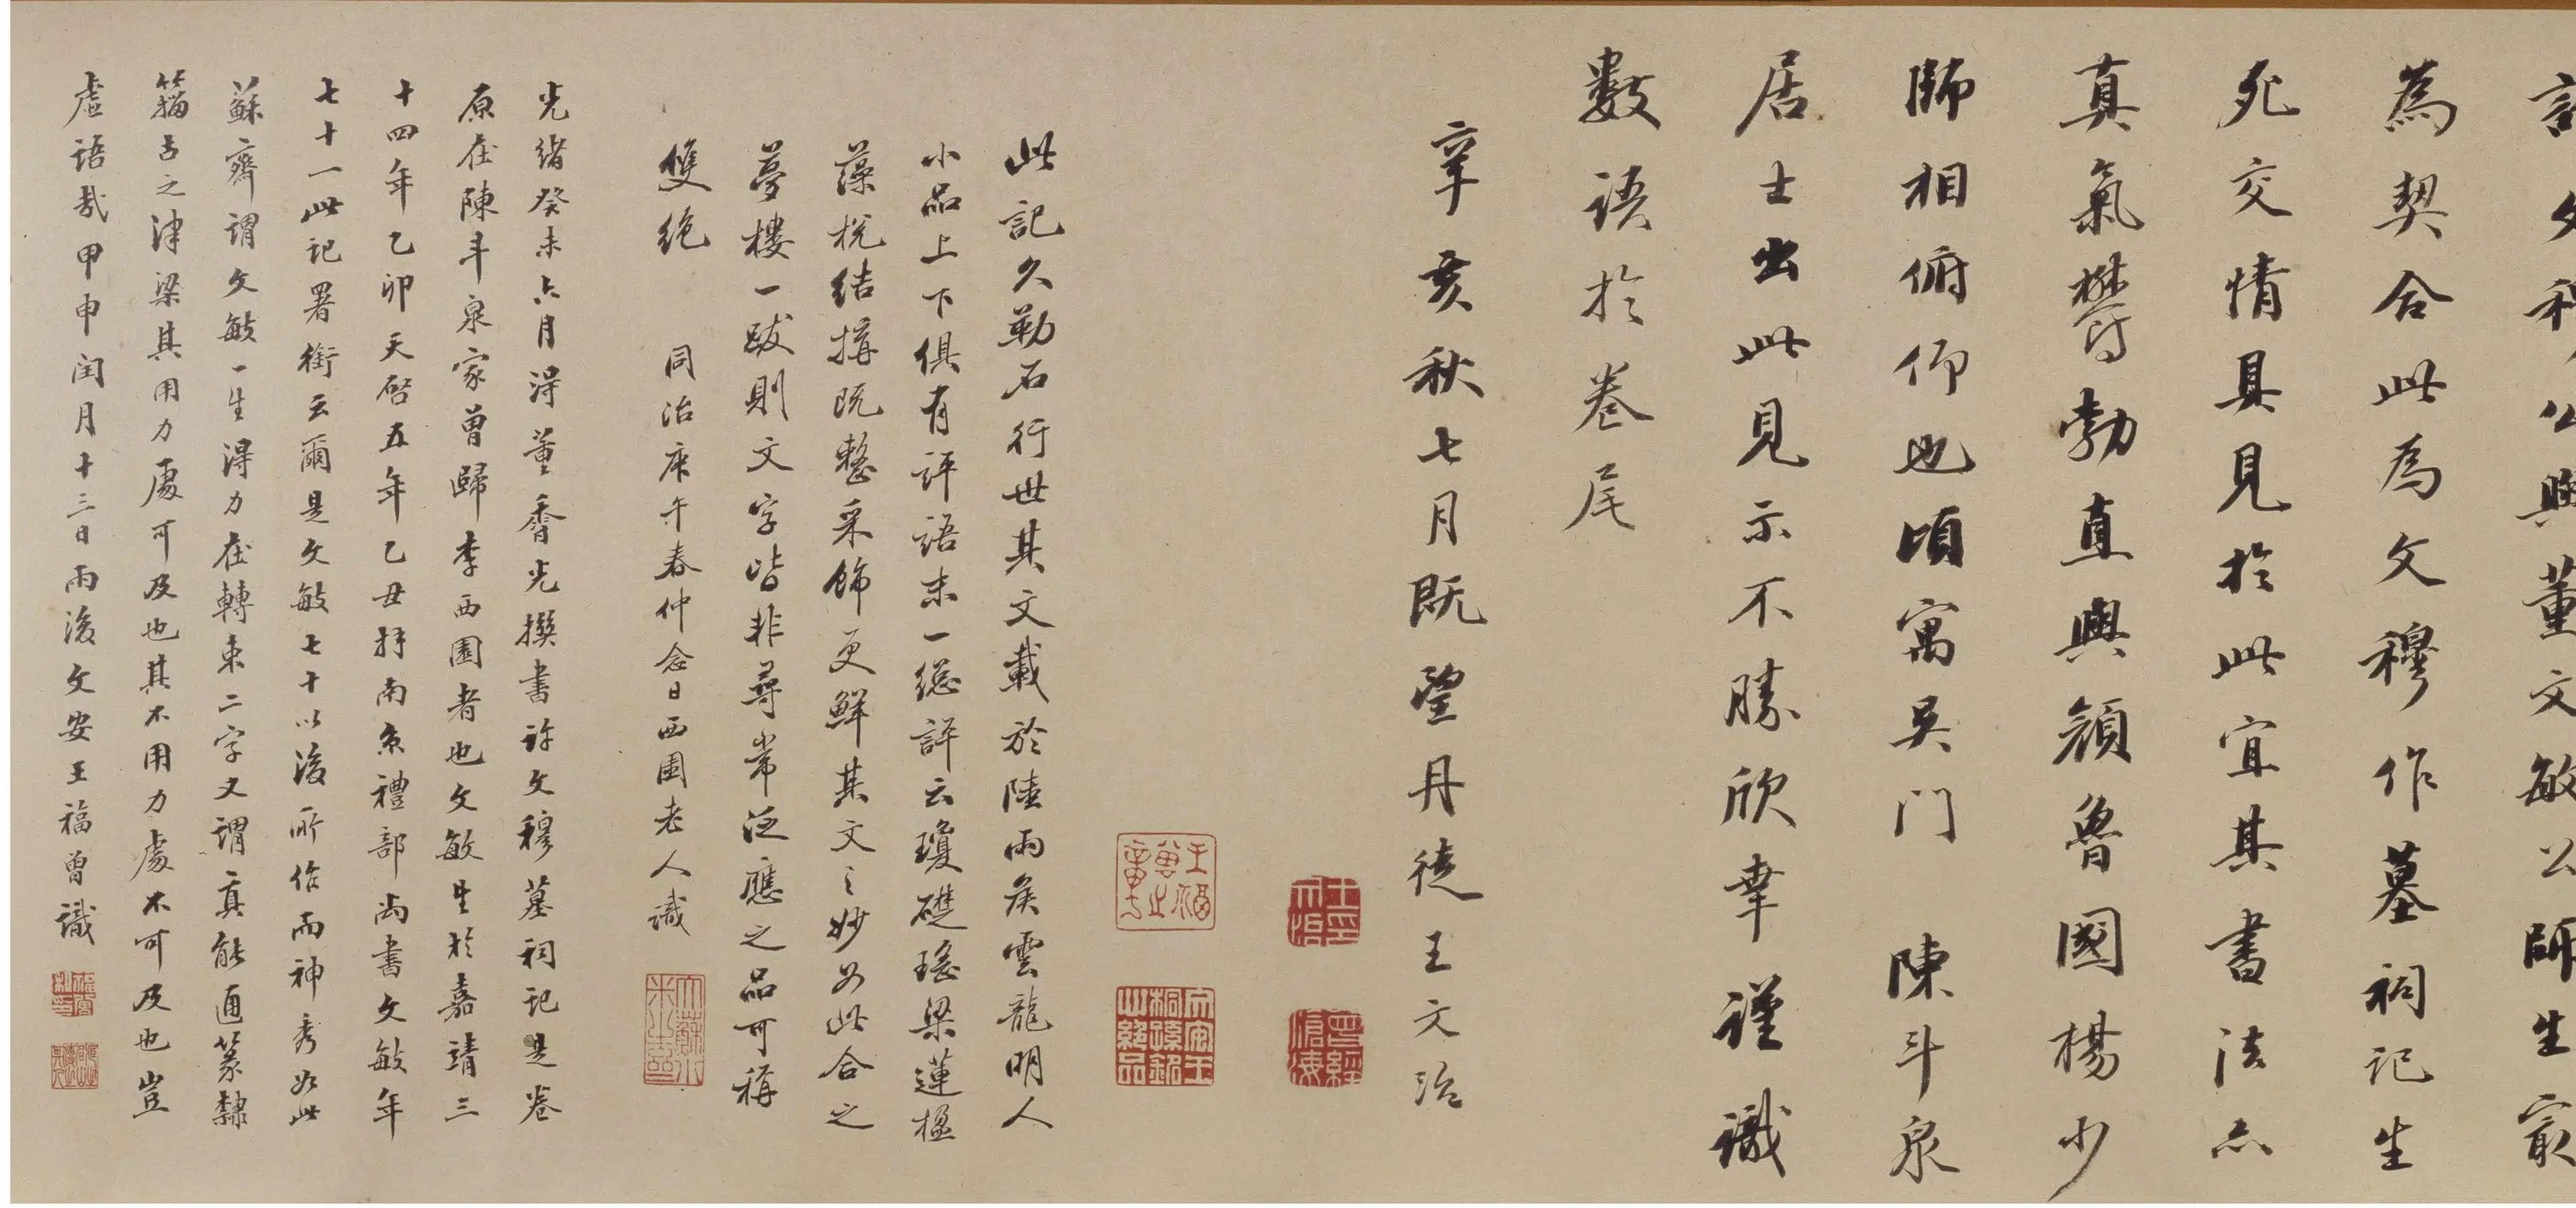 許文穆公與董文敏公師生最
為契合此為文穆作墓祠記生
死交情具見於此宜其書法亦
真氣鬱勃直與顏魯國楊少
師相俯仰也頃寓吳門 陳斗泉
居士出此見示不勝欣幸謹識
數語於卷尾
辛亥秋七月既望丹徒王文治
此記久勒石行世其文載於陸雨侯雲龍明人
小品上下俱有評語末一總評云瓊礎瑤梁蓮楹
藻梲結搆既整采飾更鮮其文之妙如此合之
夢樓一跋則文字皆非尋常泛應之品可稱
雙絶
同治庚午春仲念日西園老人識
光緒癸未六月得董香光撰書許文穆墓祠記是卷
原在陳斗泉家曾歸李西園者也文敏生於嘉靖三
十四年乙卯天啓五年乙丑拜南京禮部尚書文敏年
七十一此記署銜云爾是文敏七十以後所作而神秀如此
蘇齋謂文敏一生得力在轉束二字又謂真能通篆隸
籀古之津梁其用力處可及也其不用力處不可及也豈
虛語哉甲申閏月十三日雨後文安王福曾識